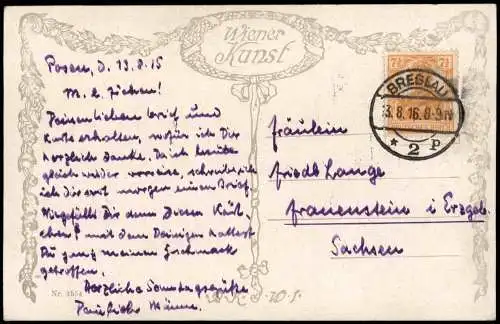 Wiener
Kunst
Posen, d. 13.8.15
M. l. 
Deinen lieben Brief und
Karte erhalten, wofür ich Dir
herzlich danke. Da ich heute
gleich wieder verreise, schreibe ich
ich Dir erst morgen einen Brief.
Wie gefällt Dir denn dieses
mit dem Deinigen hattest
Du ganz meinen Geschmack
getroffen.
Herzliche Sonntagsgrüße
Dein
BRESLAU
3.8.16.8-9N
* 2 p
7½ 7½
Fräulein
Friedl Lange
Frauenstein i Erzgeb.
Sachsen
Nr.
W. S.